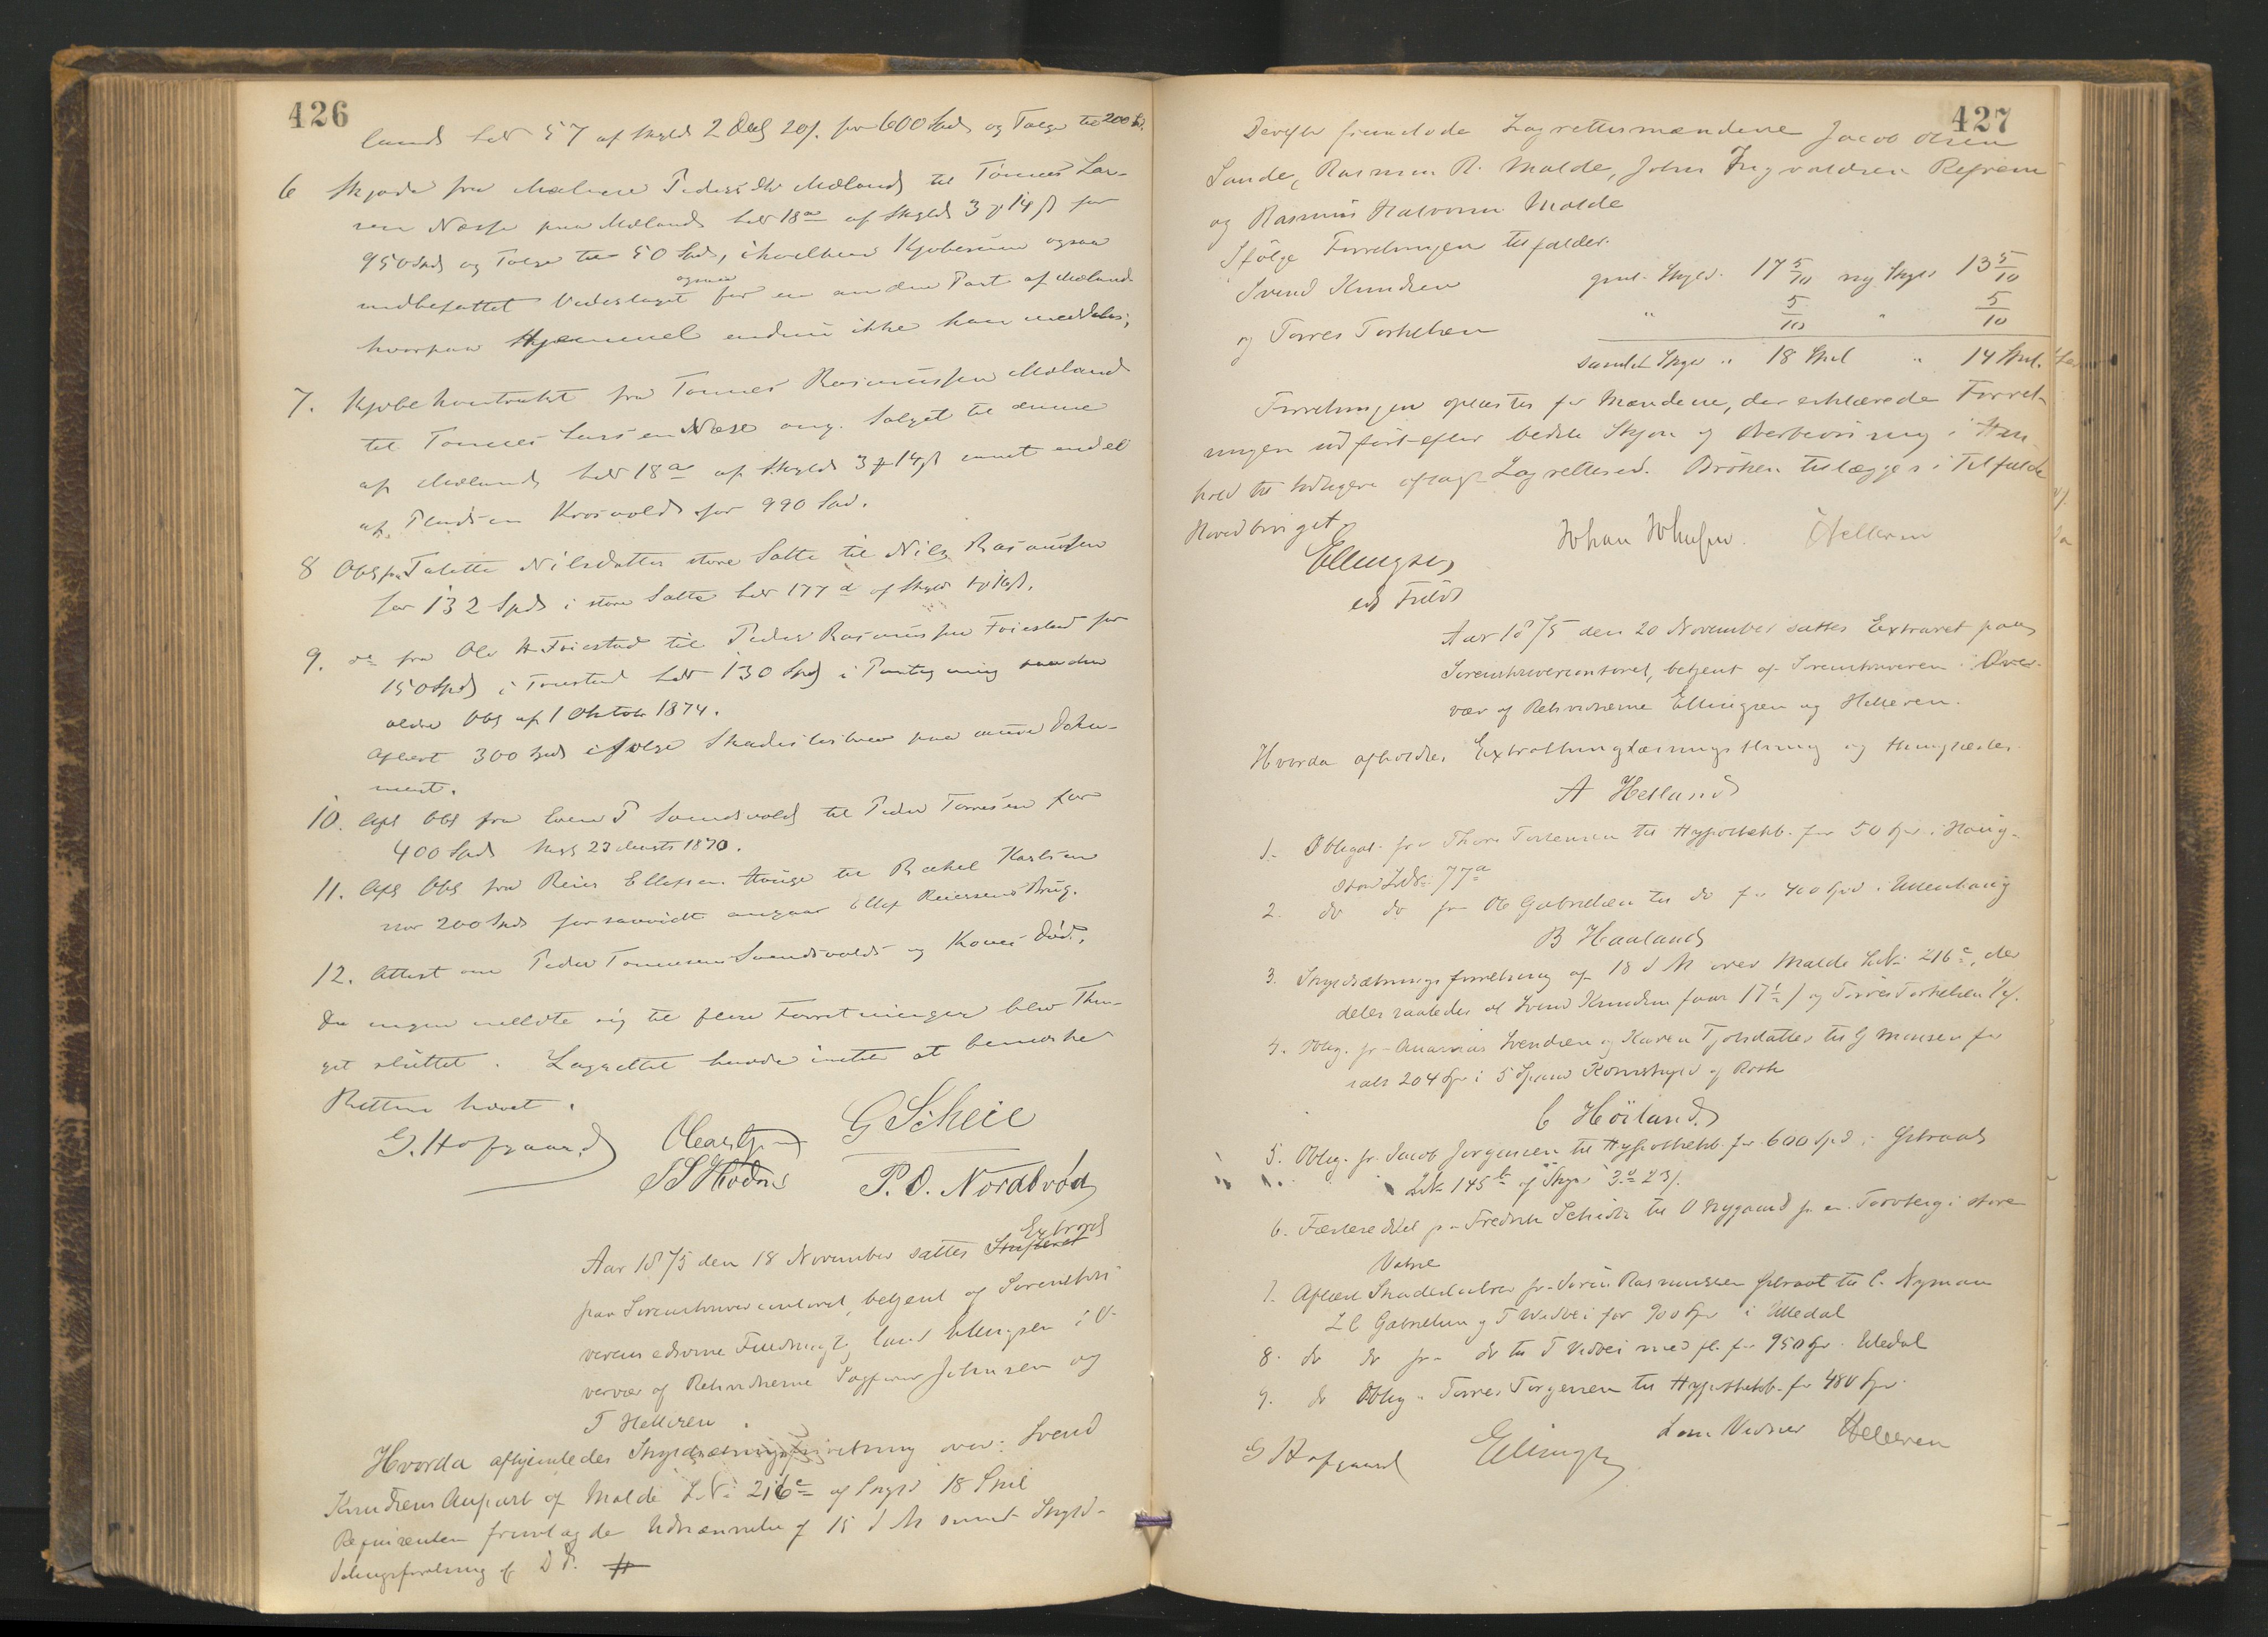 426
lands LNo 57 af Skyld 2 Daler 20 s. for 600 Spd og Følge til 200 Spd.
6 Skjøde fra Malene Pedersdtr Møland til Tønnes Lar-
sen Næsse paa Møland LNo 18a af Skyld 3 14 s for
950 Spd og Følge til 50 Spd, i hvilken Kjøbesum ogsaa
indbefattet Vederlaget ogsaa for en anden Part af Møland
hvorpaa Hjemmel endnu ikke kan meddeles;
7. Kjøbekontrakt fra Tønnes Rasmussen Møland
til Tønnes Larsen Næse ang. Salget til denne
af Møland LNo 18a af Skyld 3 14 s samt endel
af Krosvold for 990 Spd.
8 Obl fra Talette Nilsdatter store Salte til Nils Rasmussen
for 132 Spd i store Salte LNo 177 d af Skyld
9. do fra Ole H Foiestad til Peder Rasmussen Foiestad for
150 Spd i Foiestad LNo 130
ældre Obl af 1 Oktob 1874.
Aflæst 300 Spd ifølge Skadesløsbrev paa Doku-
ment.
10. Afl Obl fra Even P Svendsvold til Peder Tørresen for
400 Spd 23 Marts 1870.
11. Afl Obl fra Reier Ellefsen Hauge til Rakel Karlsen
stor 200 Spd forsaavidt angaar Ellef Reiersens Brug.
12. Attest om Peder Tønnesens Svendsvold og Kones Død.
Da ingen meldte sig til flere Forretninger blev Thin-
get sluttet. Lagrettet havde intet at bemærke
Retten hævet.
G. Hofgaard G Scheie
P. O. Nordbrød
Extraret
Aar 1875 den 18 November sattes
paa Sorenskrivercontoret, betjent af Sorenskri-
verens edsvorne Fuldmægt. Cand Ellingsen i O-
vervær af Retsvidnerne Sagfører Johnsen og
T Helleren.
Hvorda afhjemledes Skyldsætningsforretning over Svend
Knudsens Anpart af Malde LNo 216c af Skyld 18 Spd
Requirenten fremlagde Udnævnelse af 15 d M samt Skyld-
delingsforretning af D.D. #
427
Derefter fremstode Lagrettesmændene Jacob Olsen
Sande, Rasmus R. Malde, John Ingvaldsen Refsnes
og Rasmus Halvorsen Malde
Ifølge Forretningen tilfalder
Svend Knudsen gml. Skyld 17 5/10 ny Skyld 13 5/10
og Torres Torkelsen " 5/10 " 5/10
samlet Skyld " 18 Spd " 14 Spd.
Forretningen oplæstes for Mændene, der erklærede Forret-
ningen udført efter bedste Skjøn og Overbevisning i Hen-
hold til tidligere aflagt Lagrettesed. Brøken tillægges i Tilfælde
Hovedbruget.
Ellingsen Johan Johnsen. Helleren
eds Fuldm
Aar 1875 den 20 November sattes Extraret paa
Sorenskrivercontoret, betjent af Sorenskriveren i Over-
vær af Retsvidnerne Ellingsen og Helleren.
Hvorda afholdtes Extrathinglæsningsthing og thinglæstes
A Hetland
1. Obligat. fra Thore Torkensen til Hypothekb. for 50 Spd. i Haug-
stad LNo 77a
2. do do fra Ole Gabrielsen til do for 400 Spd i Ullenhaug
B Haaland
3. Skyldsætningsforretning af 18 d M over Malde LNo 216c, der
deles saaledes at Svend Knudsen faar 17½ s og Torres Torkelsen ½ s.
4. Oblig. fra Ananias Svendsen og Karen Tjølsdatter til G Monsen for
ialt 204 Spd i 5 Spand Kornskyld af Roth
C Höiland
5. Oblig. fr Jacob Jørgensen til Hypothekb. for 600 Spd i Gilraas
LNo 145b af Skyld 3 23 s.
6. Fæsteseddel fra Fredrik Schiøtz til O Nygaard for en Torvteig i store
Vatne
7. Aflæst Skadesløsbrev fra Søren Rasmussen til C. Nyman
L C Gabrielsen og T Vedvei for 900 Spd i Ulledal
8. do do fra do til T Vedvei med fl. for 950 Spd. Uledal
9. do Oblig. Torres Torgersen til Hypothekb. for 480 Spd.
G Hofgaard Ellingsen som Vidner Helleren